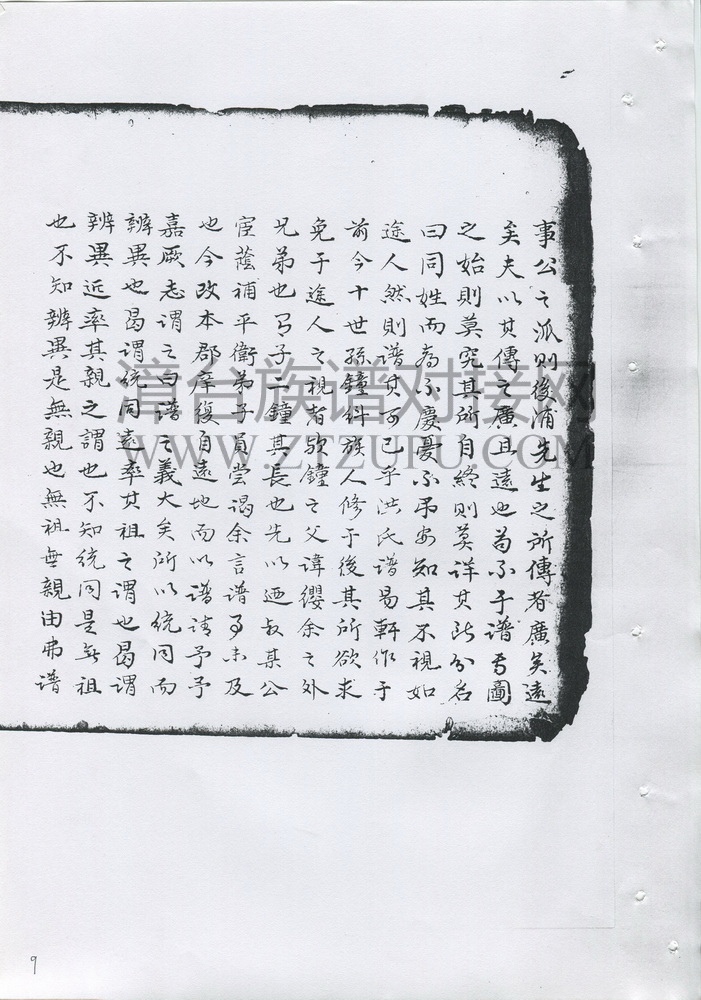 事公之派則後浦先生之所傳者廣矣遠
矣夫以其傳之廣且遠也苟不于譜焉圖
之始則莫究其所自終則莫詳其所分名
曰同姓而為不慶憂不吊安知其不視如
途人然則譜其可已乎洪氏譜易軒作于
前今十世孫鐘斜族人修于後其所欲求
免于途人之視者歟鐘之父諱纓余之外
兄弟也有子二鐘其長也先以廼叔某公
宦蔭補平衛弟子員嘗謁余言譜事未及
也今改本郡庠復自遠地而以譜請予予
嘉厥志謂之曰譜之義大矣所以統同而
辨異也曷謂統同遠率其祖之謂也曷謂
辨異近率其親之謂也不知統同是無祖
也不知辨異是無親也無祖無親由弗譜
漳台族譜对接网
WWW.ZTZUPU.COM
9